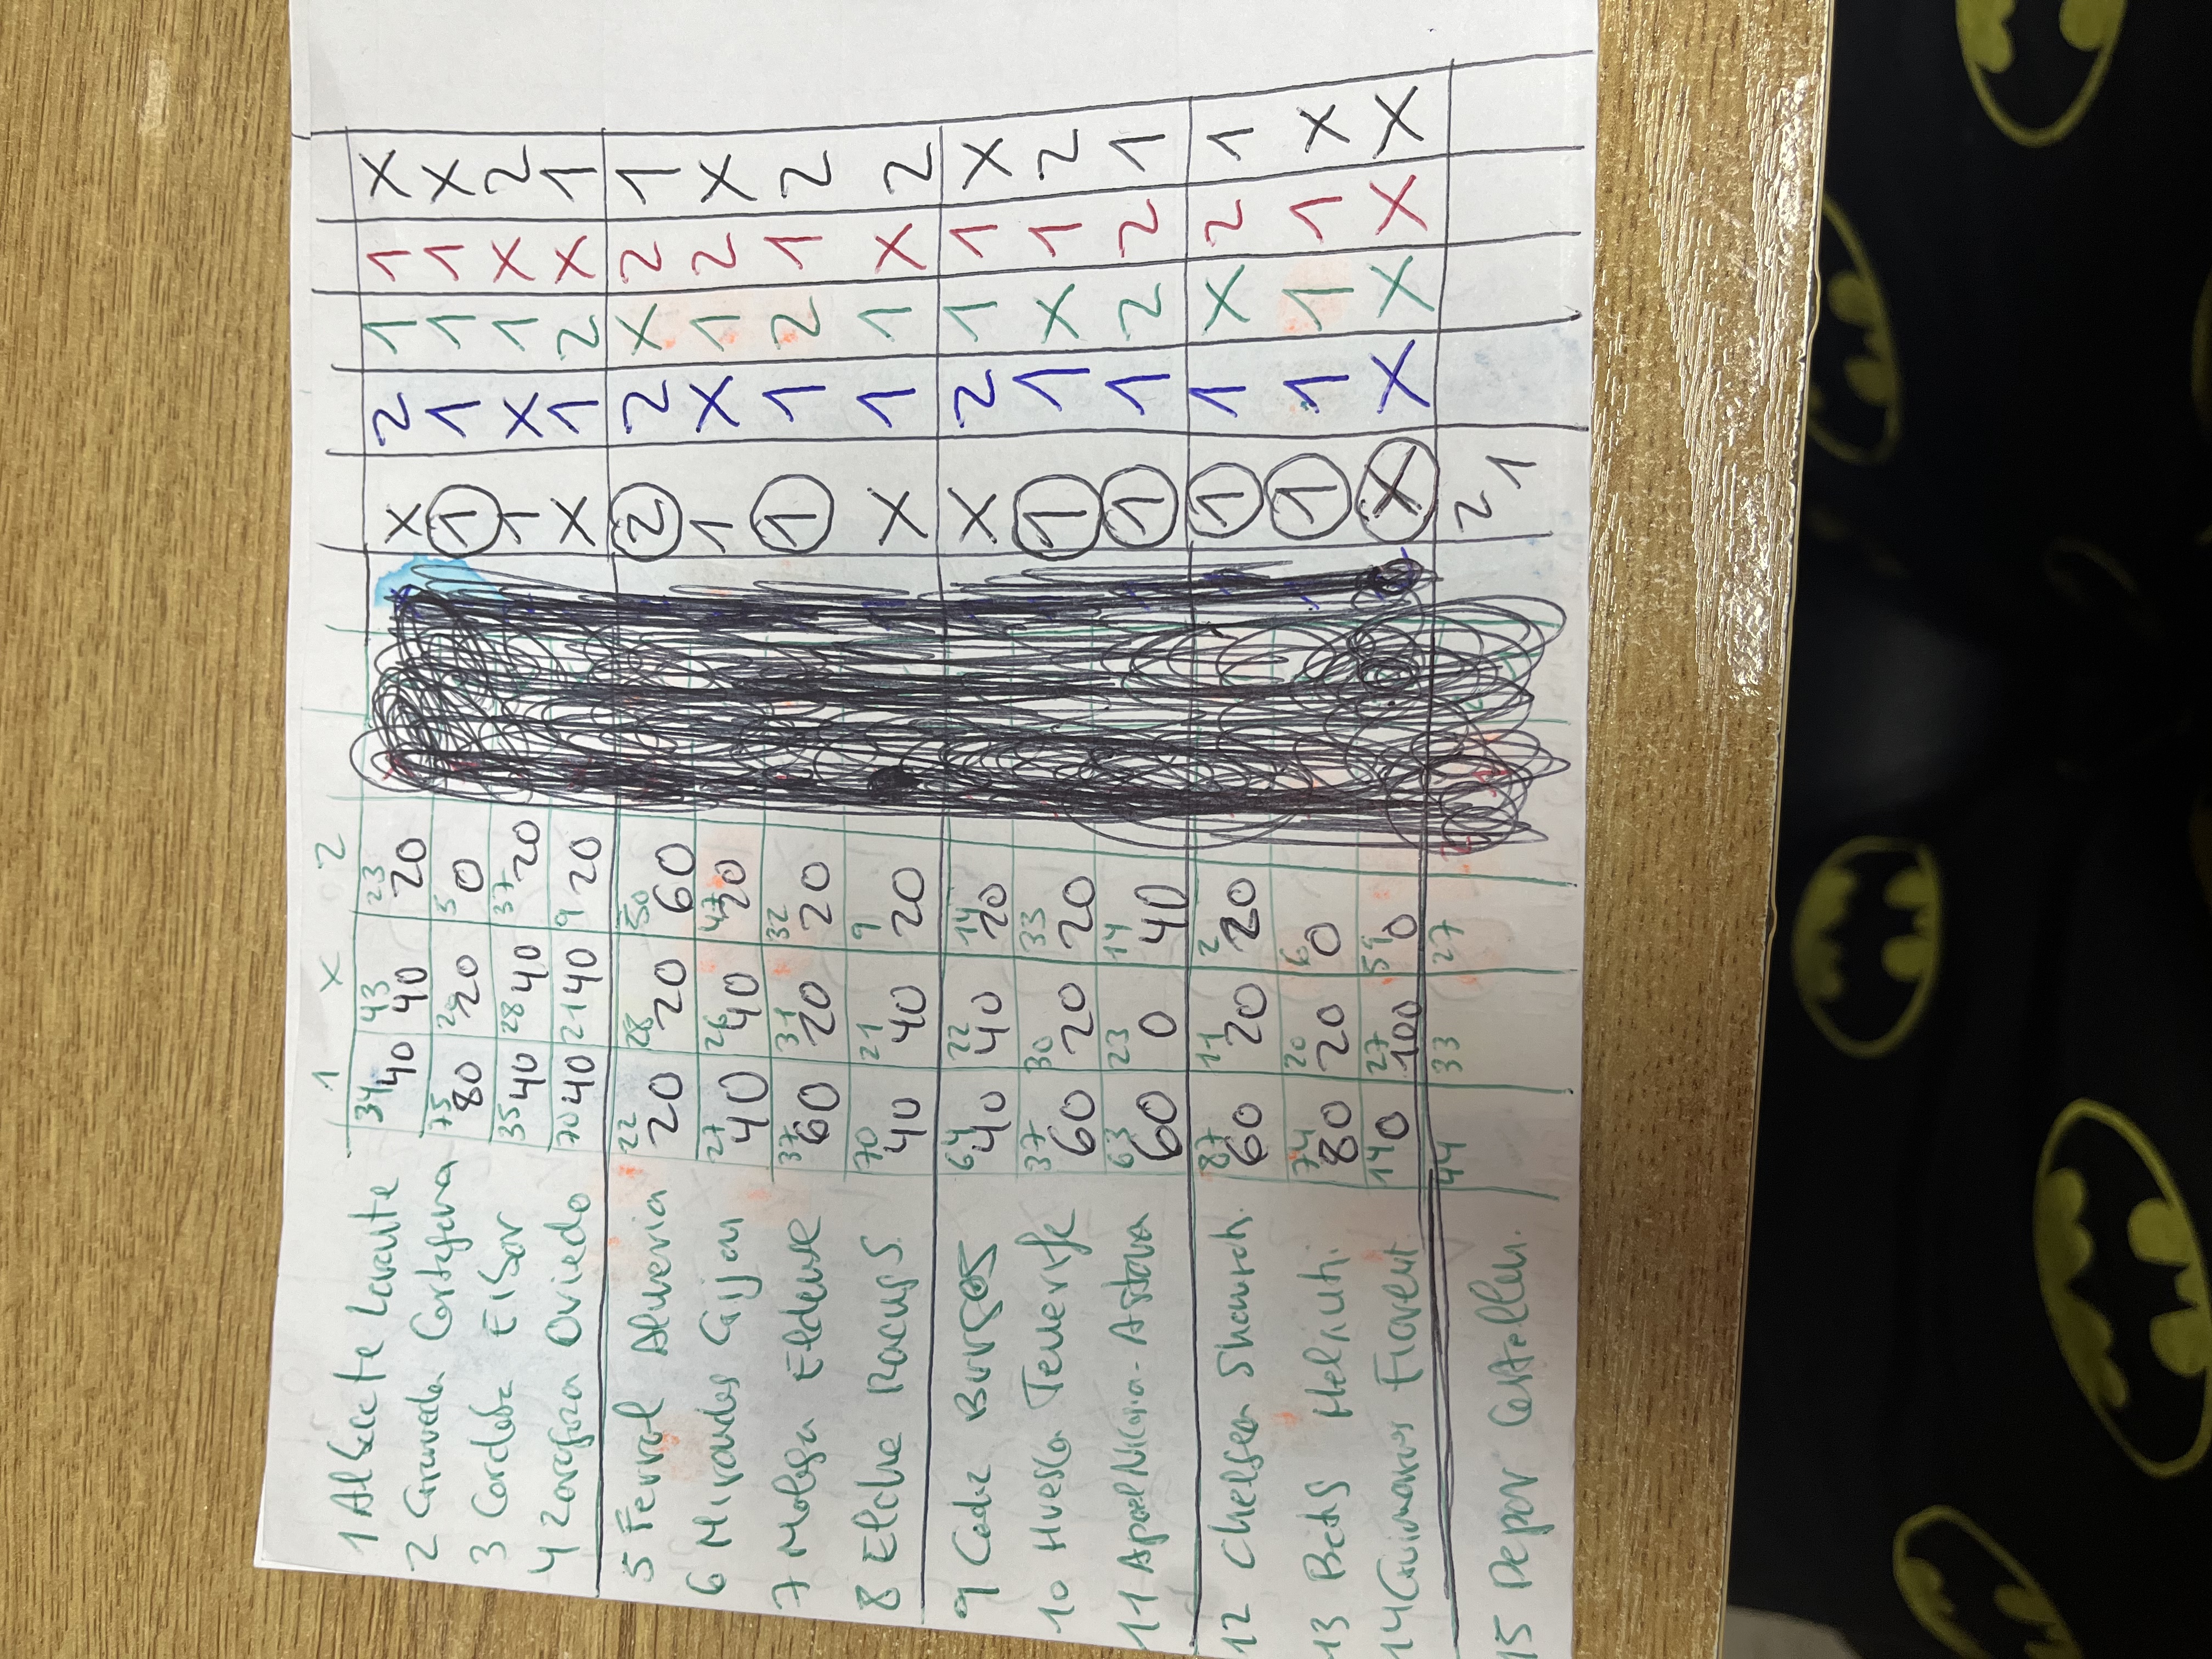 1 X 2
34 43 23
1 Albacete Levante 40 40 20 X 2 1 1 X
75 20 5
2 Granada Cartagena 80 20 0 1 1 1 1 X
35 28 37
3 Cordoba Eibar 40 40 20 1 X 1 X 2
70 21 9
4 Zaragoza Oviedo 40 40 20 X 1 2 X 1
22 28 50
5 Ferrol Almeria 20 20 60 2 2 X 2 1
27 26 47
6 Mirandes Gijon 40 40 20 1 X 1 2 X
37 31 32
7 Malaga Eldense 60 20 20 1 1 2 1 2
70 21 9
8 Elche Racing S. 40 40 20 X 1 1 X 2
64 22 14
9 Cadiz Burgos 40 40 20 X 2 1 1 X
37 30 33
10 Huesca Tenerife 60 20 20 1 1 X 1 2
63 23 14
11 Apoel Nicosia-Astana 60 0 40 1 1 2 2 1
87 11 2
12 Chelsea Shamroch. 60 20 20 1 1 X 2 1
74 20 6
13 Betis 80 20 0 1 1 1 1 X
14 27 59
14 Guimaraes Fiorent. 0 100 0 X X X X X
44 33 27
15 Depor Castellon. 2 1